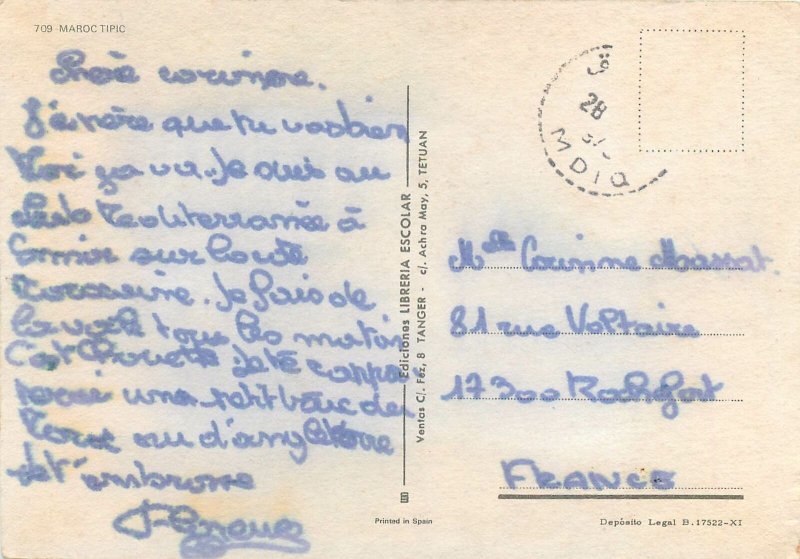 709 MAROC TIPIC
corinne.
J'espère que tu vas bien
Moi ça va. Je suis au
Club Mediterranée à
Smir sur la côte
Marocaine. Je fais de
la voile tous les matins
C'est chouette je te
une petit truc de
Maroc ou d'angleterre
Je t'embrasse
Ediciones LIBRERIA ESCOLAR
Ventas C/. Fez, 8 TANGER - c/. Achra May, 5, TETUAN
Printed in Spain
28
MDIQ
Melle Corinne Massat.
81 rue Voltaire
17300 Rochefort
FRANCE
Depósito Legal B. 17522-XI